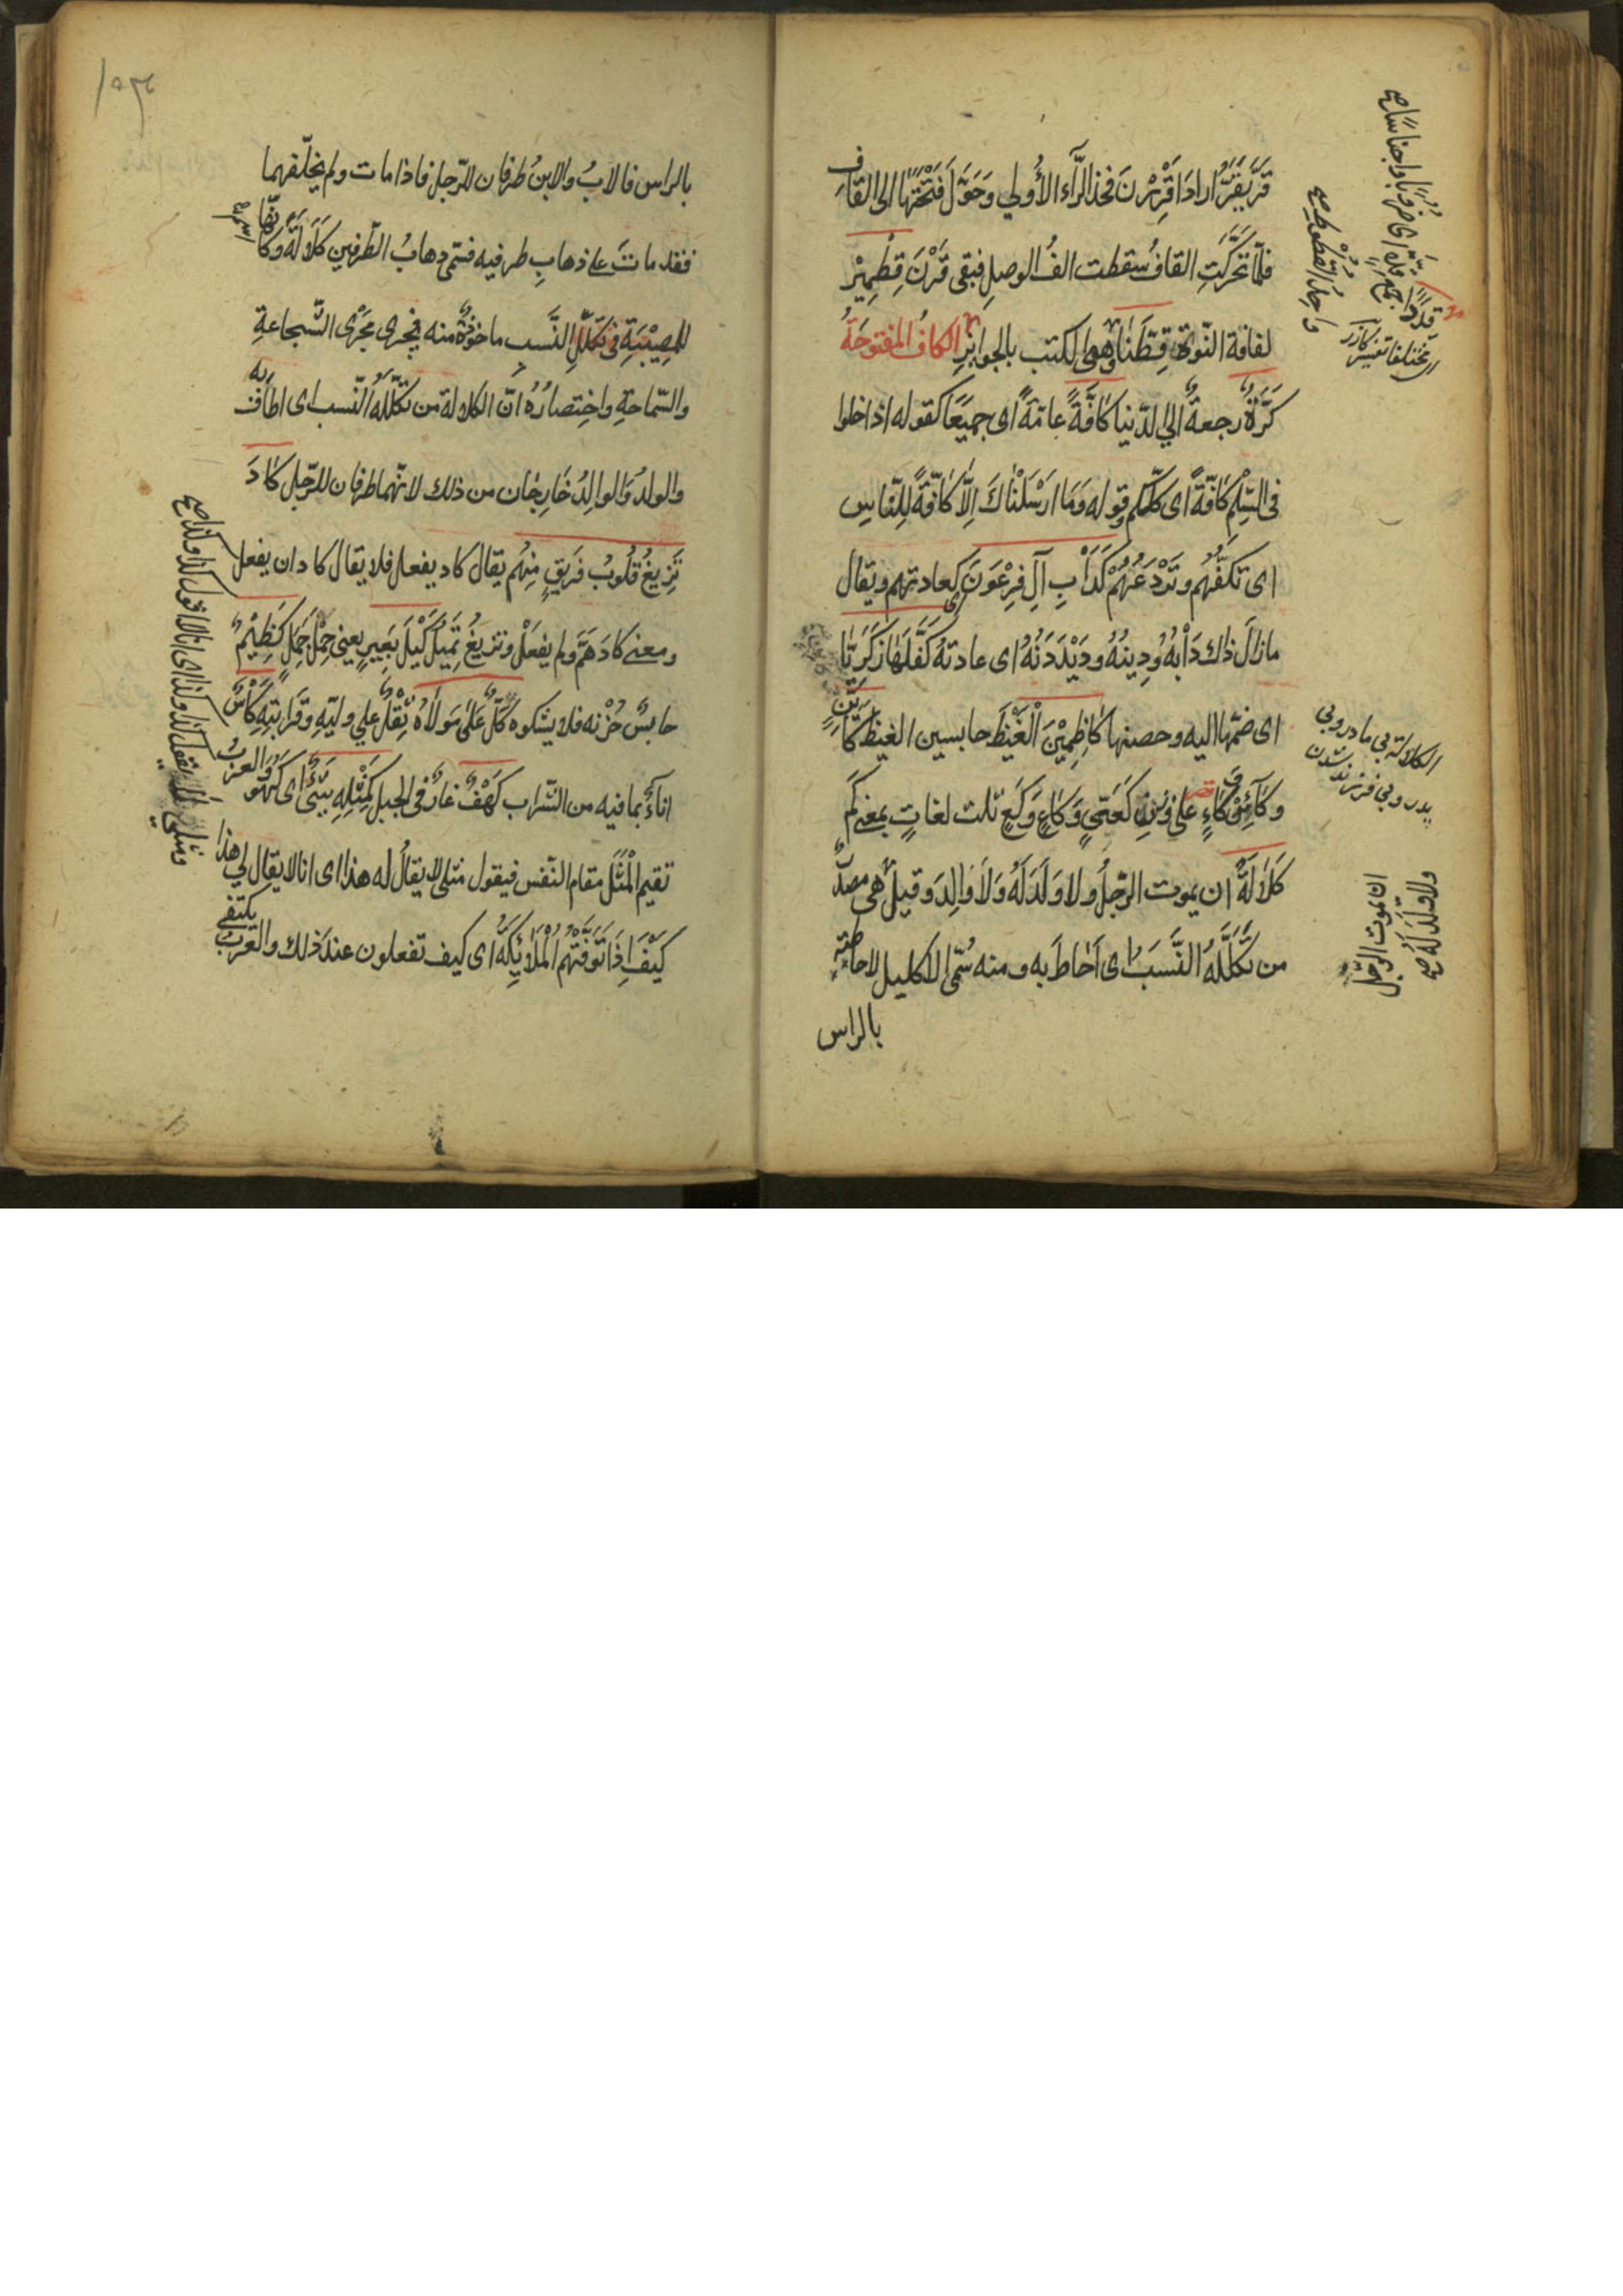 قَرَّ يَقَرُّ اراد اقْرِرْنَ فحذف الرَّآء الأُولي وَحَوَّلَ فَتْحَتَهَا الى القاف
فلمّا تحَرَّكَتِ القافُ سقطت الفُ الوصلِ فبقى قَرْنَ قِطْمِيْرٍ
لفافة النّوٰة قِطَّنَا وهى الكتب بالجوائزِ الكافُ المفتوحَةُ
كَرَّةٌ رجعةٌ الي الدّنيا كٰافَّةً عامّةً اى جميعًا كقوله ادخلوا
فى السِّلْمِ كٰافَّةً اى كلّكم وقوله وَمَا ارْسَلْنٰاكَ اِلّٰا كٰافَّةً لِلنّٰاسِ
اى تكفّهُم وتَرْدَعُهُمْ كَدَأْبِ آلِ فِرْعَوْنَ كعادتهم ويقال
مازالَ ذاك دَأْبهُ وَدِينُهُ ودَيْدَنُهُ اى عادتهُ كَفَّلَهٰا زَكَرِيّٰا
اى ضمّها اليه وحصنها كٰاظِمِيْنَ الْغَيْظَ حابسين الغيظ كَأَيِّنْ
وكَآئِنْ كٰاءٍ على وزنِ كَعَيّنٍ وَكٰاعٍ وَكَعٍ ثلث لغاتٍ بمعنى كَمْ
كَلٰالَةً ان يموت الرّجلُ ولا وَلَدَ لَهُ وَلَا وٰالِدَ وقيل هى مصدرٌ
من تَكَلَّلَهُ النَّسَبُ اى اَحٰاطَ به ومنه سُمّى الاكليل لاحاطته
بالراس
قِدَدًا جمع قِدّة اى فرقا واجناسا صح
مختلفا تفسير كازر
واحدُ القُطُوط صح
الكلالة بى مادر وبى
پدر وبى فرزند شدن
ان يموت الرّجل
ولا وَلَدَ لَهُ صح
بالراس فالابُ والابنُ طرفان للرّجل فاذا مات ولم يخلّفهما
فقد ماتَ على ذهابِ طرفيه فسمّى ذهابُ الطّرفين كَلَالَةً وكانّها اسمٌ
للمصِيْبَةِ فى تكلّلِ النَّسب ماخوذةٌ منه يجرى مَجْرَى الشّجاعةِ
والسّماحةِ واختصارُهُ انّ الكلالة من تَكَلَّلَهُ النّسب اى اطاف به
والولدُ وَالوالِدُ خارِجٰان من ذلك لانّهما طرفان للرّجل كٰادَ
تَزِيغُ قُلُوبُ فَرِيقٍ مِنْهُم يقال كاد يفعل فلا يقال كاد ان يفعل
ومعنى كادَ هَمَّ ولم يفعَلْ وتزيغُ تَمِيْلُ كَيْلَ بَعِيرٍ يعنى حِمْلَ جَمَلٍ كَظِيْمٌ
حابسٌ حُزْنه فلا يشكوه كَلٌّ عَلٰى مَولٰاهُ ثِقْلٌ علي وليّهِ وقَرابتِه كَأْسٌ
اناءٌ بما فيه من الشّراب كَهْفٌ غارٌ فى الجبل كَمِثْلِهِ شَيْءٌ اى كَهُوَ والعربُ
تقيم الْمثْلَ مقام النّفس فيقول مثلى لا يقالُ له هذا اى انا لا يقال لي هذا
كَيْفَ اِذَا تَوَفَّتْهُمُ الْمَلٰائِكَةُ اى كيف تفعلون عند ذلك والعَرَبُ يكتفى